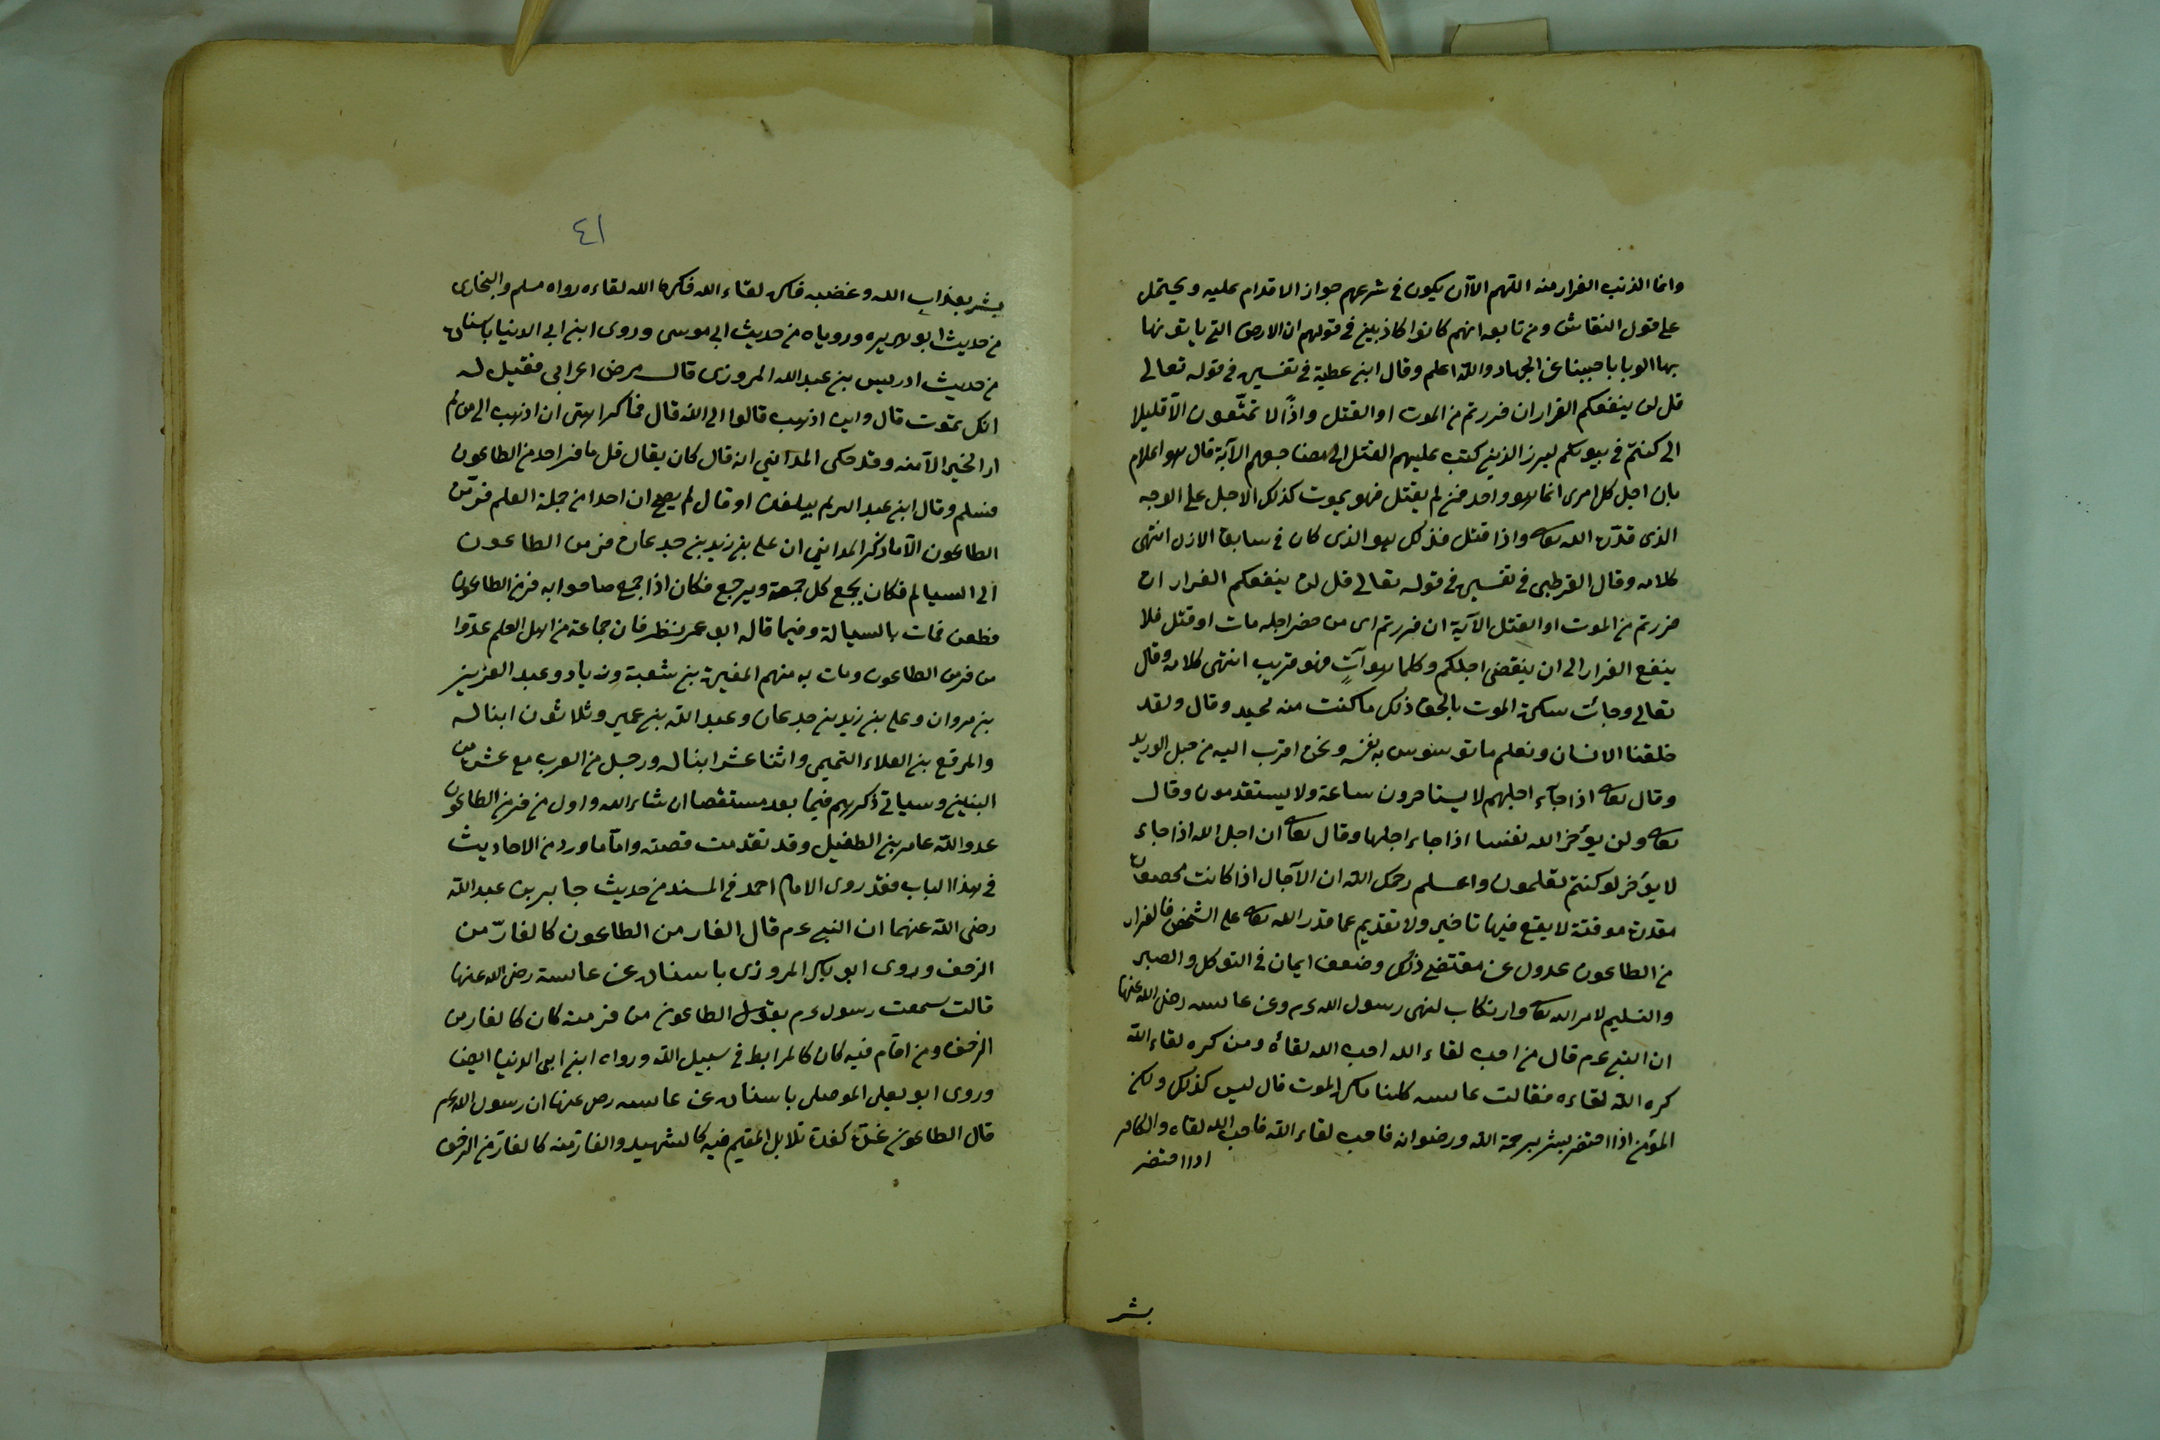 وانما الذنب الفرار منه اللهم الا ان يكون في شرعهم جواز الاقدام عليه ويحتمل
على قول النقاش ومن تابعه انهم كانوا كاذبين في قولهم ان الارض التي ياتونها
بها الوبا يا حبيبنا عن الجهاد والله اعلم وقال ابن عطية في تفسيره في قوله تعالى
قل لن ينفعكم الفرار ان فررتم من الموت او القتل واذًا لا تمتّعون الّا قليلا
الى كنتم في بيوتكم لبرز الذين كتب عليهم القتل الى مضاجعهم الآية قال هو اعلام
بان اجل كل امرى انما هو واحد فمن لم يقتل فهو يموت كذلك الاجل على الوجه
الذى قدّره الله تعا واذا قتل فذلك هو الذى كان في سابقة الازل انتهى
كلامه وقال القرطبي في تفسيره في قوله تعالى قل لن ينفعكم الفرار ان
فررتم من الموت او القتل الآية ان فررتم اى من حضر اجله مات او قتل فلا
ينفع الفرار الى ان ينقضى اجلكم وكلما هو آتٍ فهو قريب انتهى كلامه وقال
تعالى وجائت سكرة الموت بالحق ذلك ما كنت منه تحيد وقال ولقد
خلقنا الانسان ونعلم ما توسوس به نفسه ونحن اقرب اليه من حبل الوريد
وقال تعا اذا جآء اجلهم لا يستاخرون ساعة ولا يستقدمون وقال
تعا ولن يؤخر الله نفسا اذا جاء اجلها وقال تعا ان اجل الله اذا جاء
لا يؤخر لو كنتم تعلمون واعلم رحمك الله ان الآجال اذا كانت محصورة
مقدرة موقتة لا يقع فيها تاخير ولا تقديم عما قدر الله تعا على الشخص فالفرار
من الطاعون عدول عن مقتضى ذلك وضعف ايمان في التوكل والصبر
والتسليم لامر الله تعا وارتكاب لنهى رسول الله عم وعن عايسه رضى الله عنها
ان النبى عم قال من احب لقاء الله احب الله لقائه ومن كره لقاء الله
كره الله لقاءه فقالت عايسه كلنا يكره الموت قال ليس كذلك ولكن
المؤمن اذا احتضر بشر برحمة الله ورضوانه فاحب لقاء الله فاحب الله لقاه والكافر
اذا احتضر
بشر
٤١
بشر بعذاب الله وغضبه فكره لقاء الله فكره الله لقاءه رواه مسلم والبخارى
من حديث ابو هريره وروياه من حديث ابى موسى وروى ابن ابى الدنيا باسناده
من حديث ادريس بن عبد الله المروزى قال مرض اعرابى فقيل له
انك تموت قال واين اذهب قالوا الى الله قال فما كراهتى ان اذهب الى من لم
ار الخير الا منه وقد حكى المدائني انه قال كان يقال قل ما فر احد من الطاعون
فسلم وقال ابن عبد البر لم يبلغنى او قال لم يصح ان احدا من حملة العلم فرّ من
الطاعون الا ما ذكر المدايني ان على بن زيد بن جدعان فر من الطاعون
الى السيالم فكان يجمع كل جمعة ويرجع فكان اذا جمع صاحوا به فر من الطاعون
فطعن فمات بالسيالة وفيما قاله ابو عمر نظر فان جماعة من اهل العلم عدّوا
من فر من الطاعون ومات به منهم المغيرة بن شعبة وزياد وعبد العزيز
بن مروان وعلى بن زيد بن جدعان وعبد الله بن عمير وثلاثون ابنا له
والمرقع بن العلاء التميمى واثنا عشر ابنا له ورجل من العرب مع عشرة من
البنين وسياتى ذكرهم فيما بعد مستقصا ان شاء الله واول من فر من الطاعون
عدو الله عامر بن الطفيل وقد تقدمت قصته واماما ورد من الاحاديث
في هذا الباب فقد روى الامام احمد في المسند من حديث جابر بن عبد الله
رضى الله عنهما ان النبى عم قال الفار من الطاعون كالفارّ من
الزحف وروى ابو بكر المروزى باسناده عن عايسة رضى الله عنها
قالت سمعت رسول عم يقول الطاعون من فر منه كان كالفار من
الزحف ومن اقام فيه كان كالمرابط في سبيل الله ورواه ابن ابى الدنيا ايضا
وروى ابو يعلى الموصلى باسناده عن عايسه رض عنها ان رسول الله عم
قال الطاعون غدّة كغدة تلابل المقيم فيه كالشهيد والفارّ منه كالفارّ من الزحف